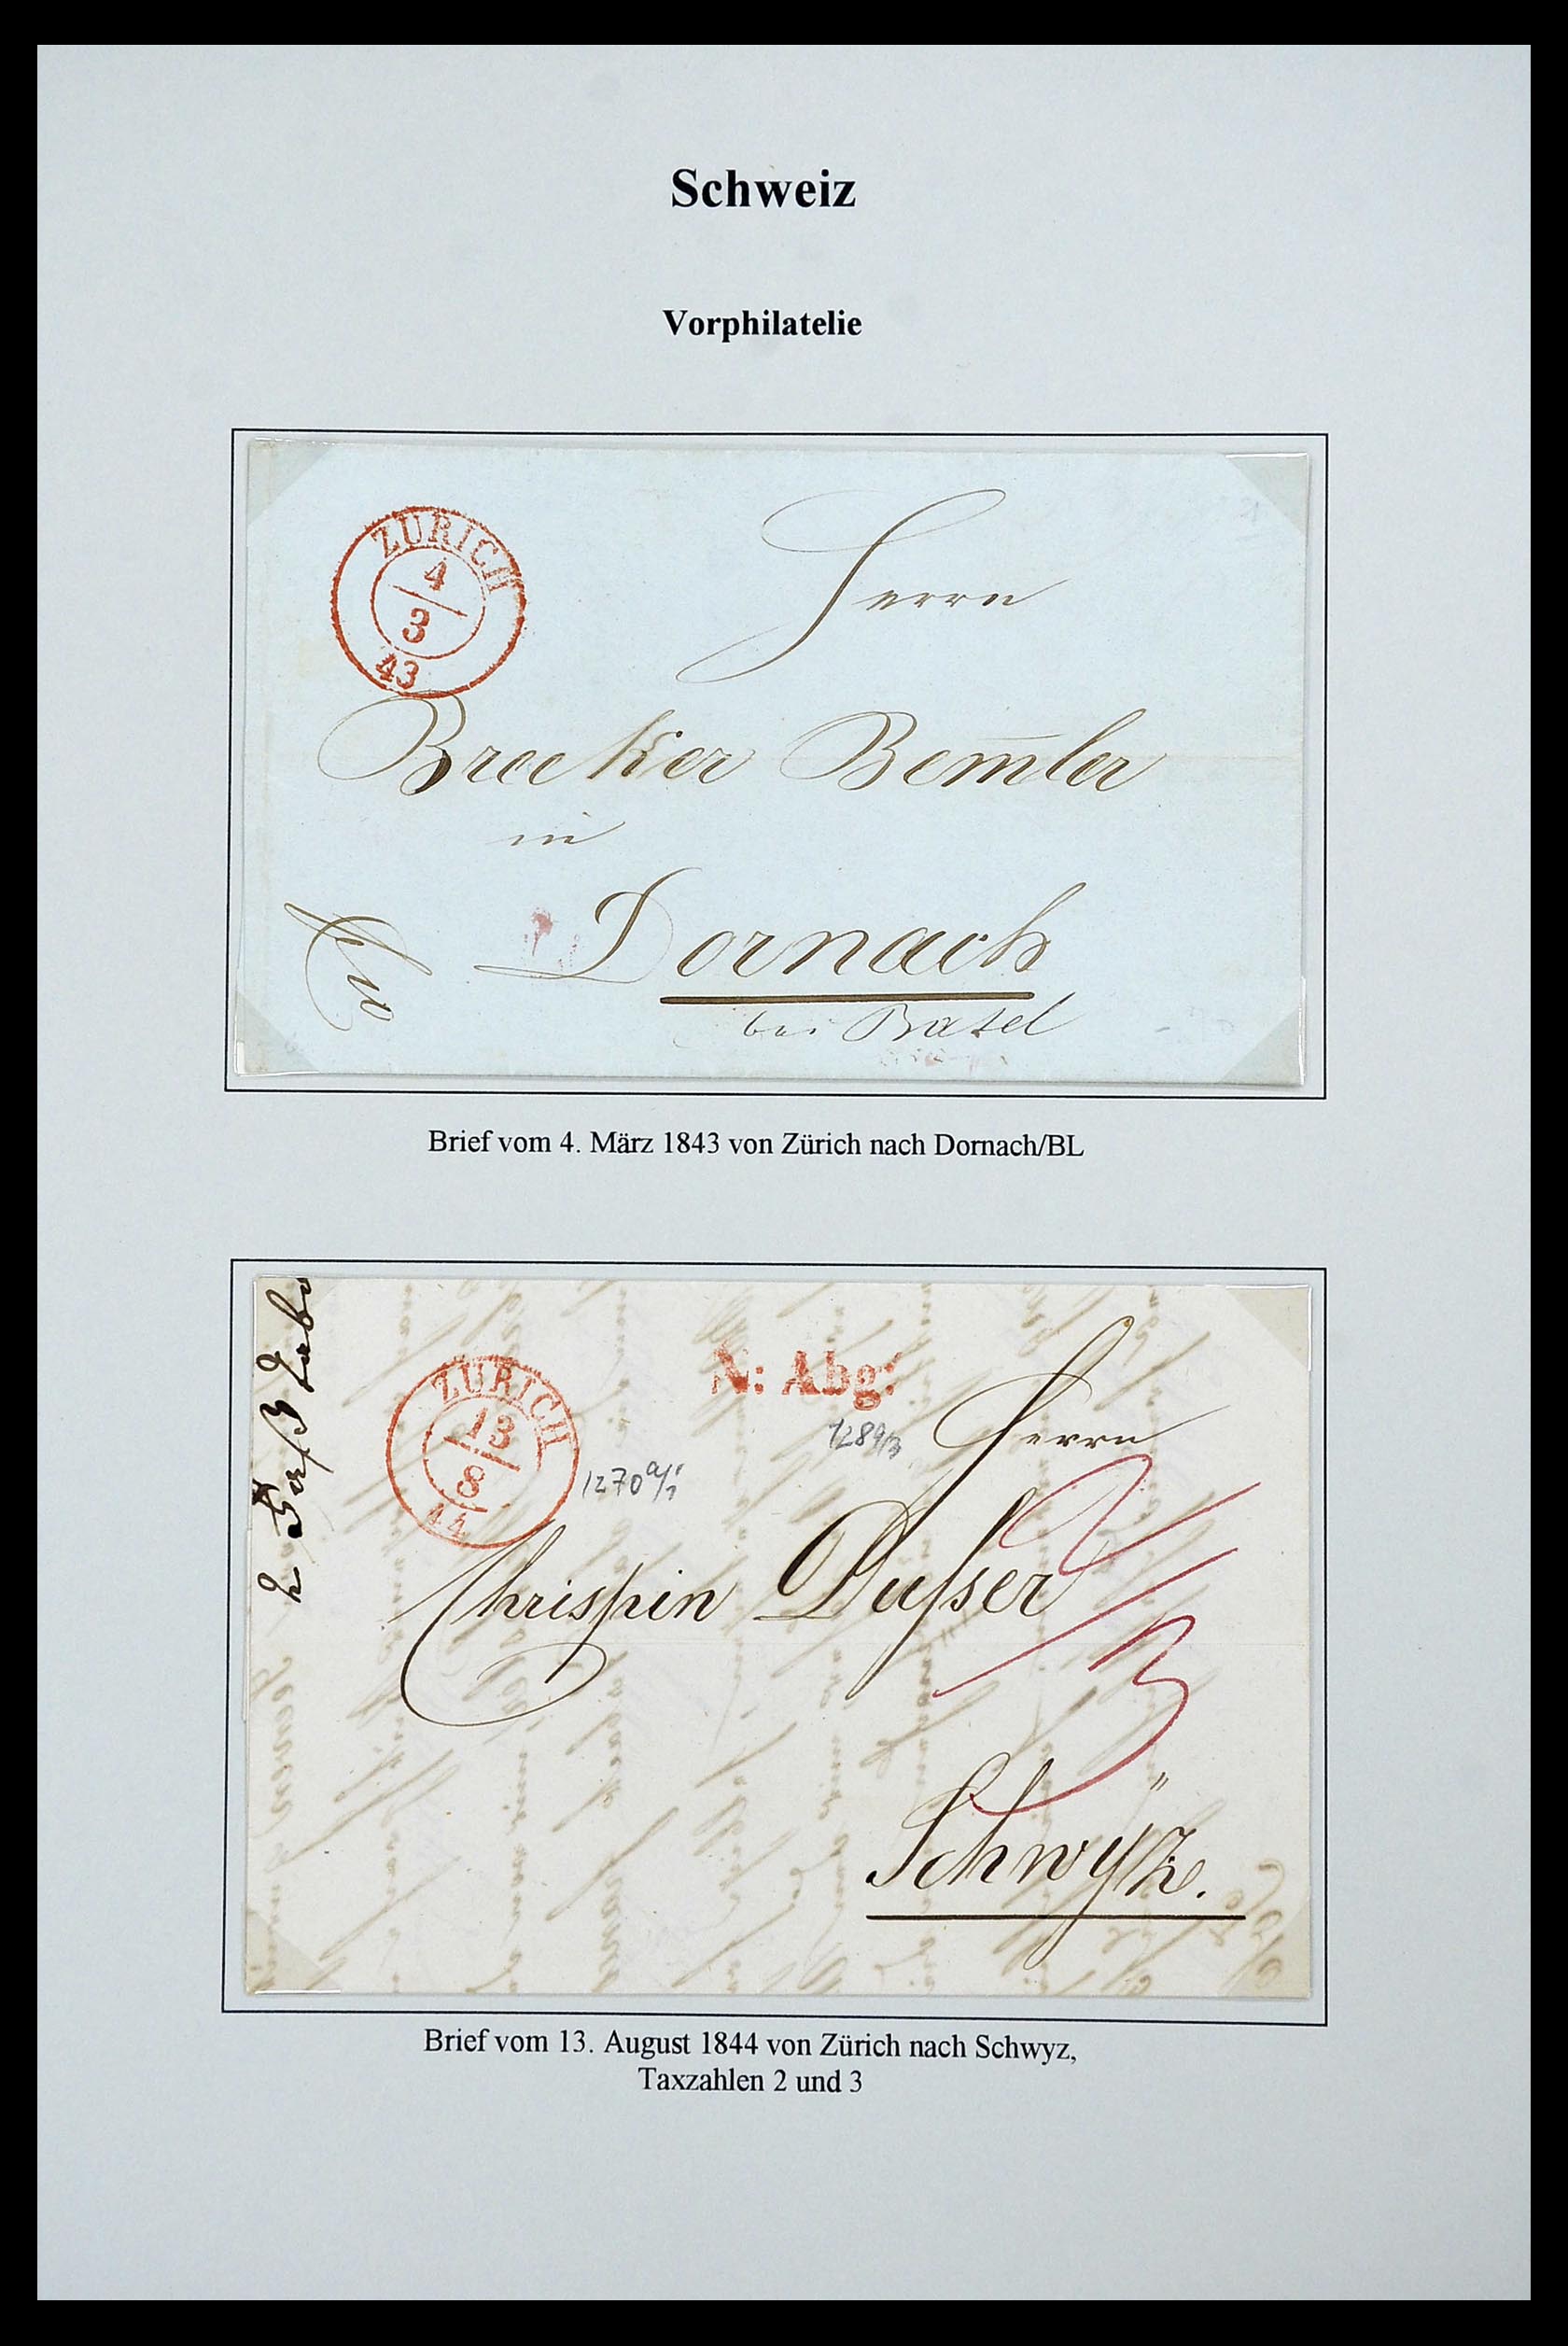 Schweiz
Vorphilatelie
ZÜRICH
4
3
43
Herrn
Brecker Bem̅ler
in
Dornach
bei Basel
Brief vom 4. März 1843 von Zürich nach Dornach/BL
N: Abg:
ZÜRICH
13
8
44
1289/3
1270a/1
Herrn
Chrispin Dusser
2
3
Schwÿz.
Brief vom 13. August 1844 von Zürich nach Schwyz,
Taxzahlen 2 und 3